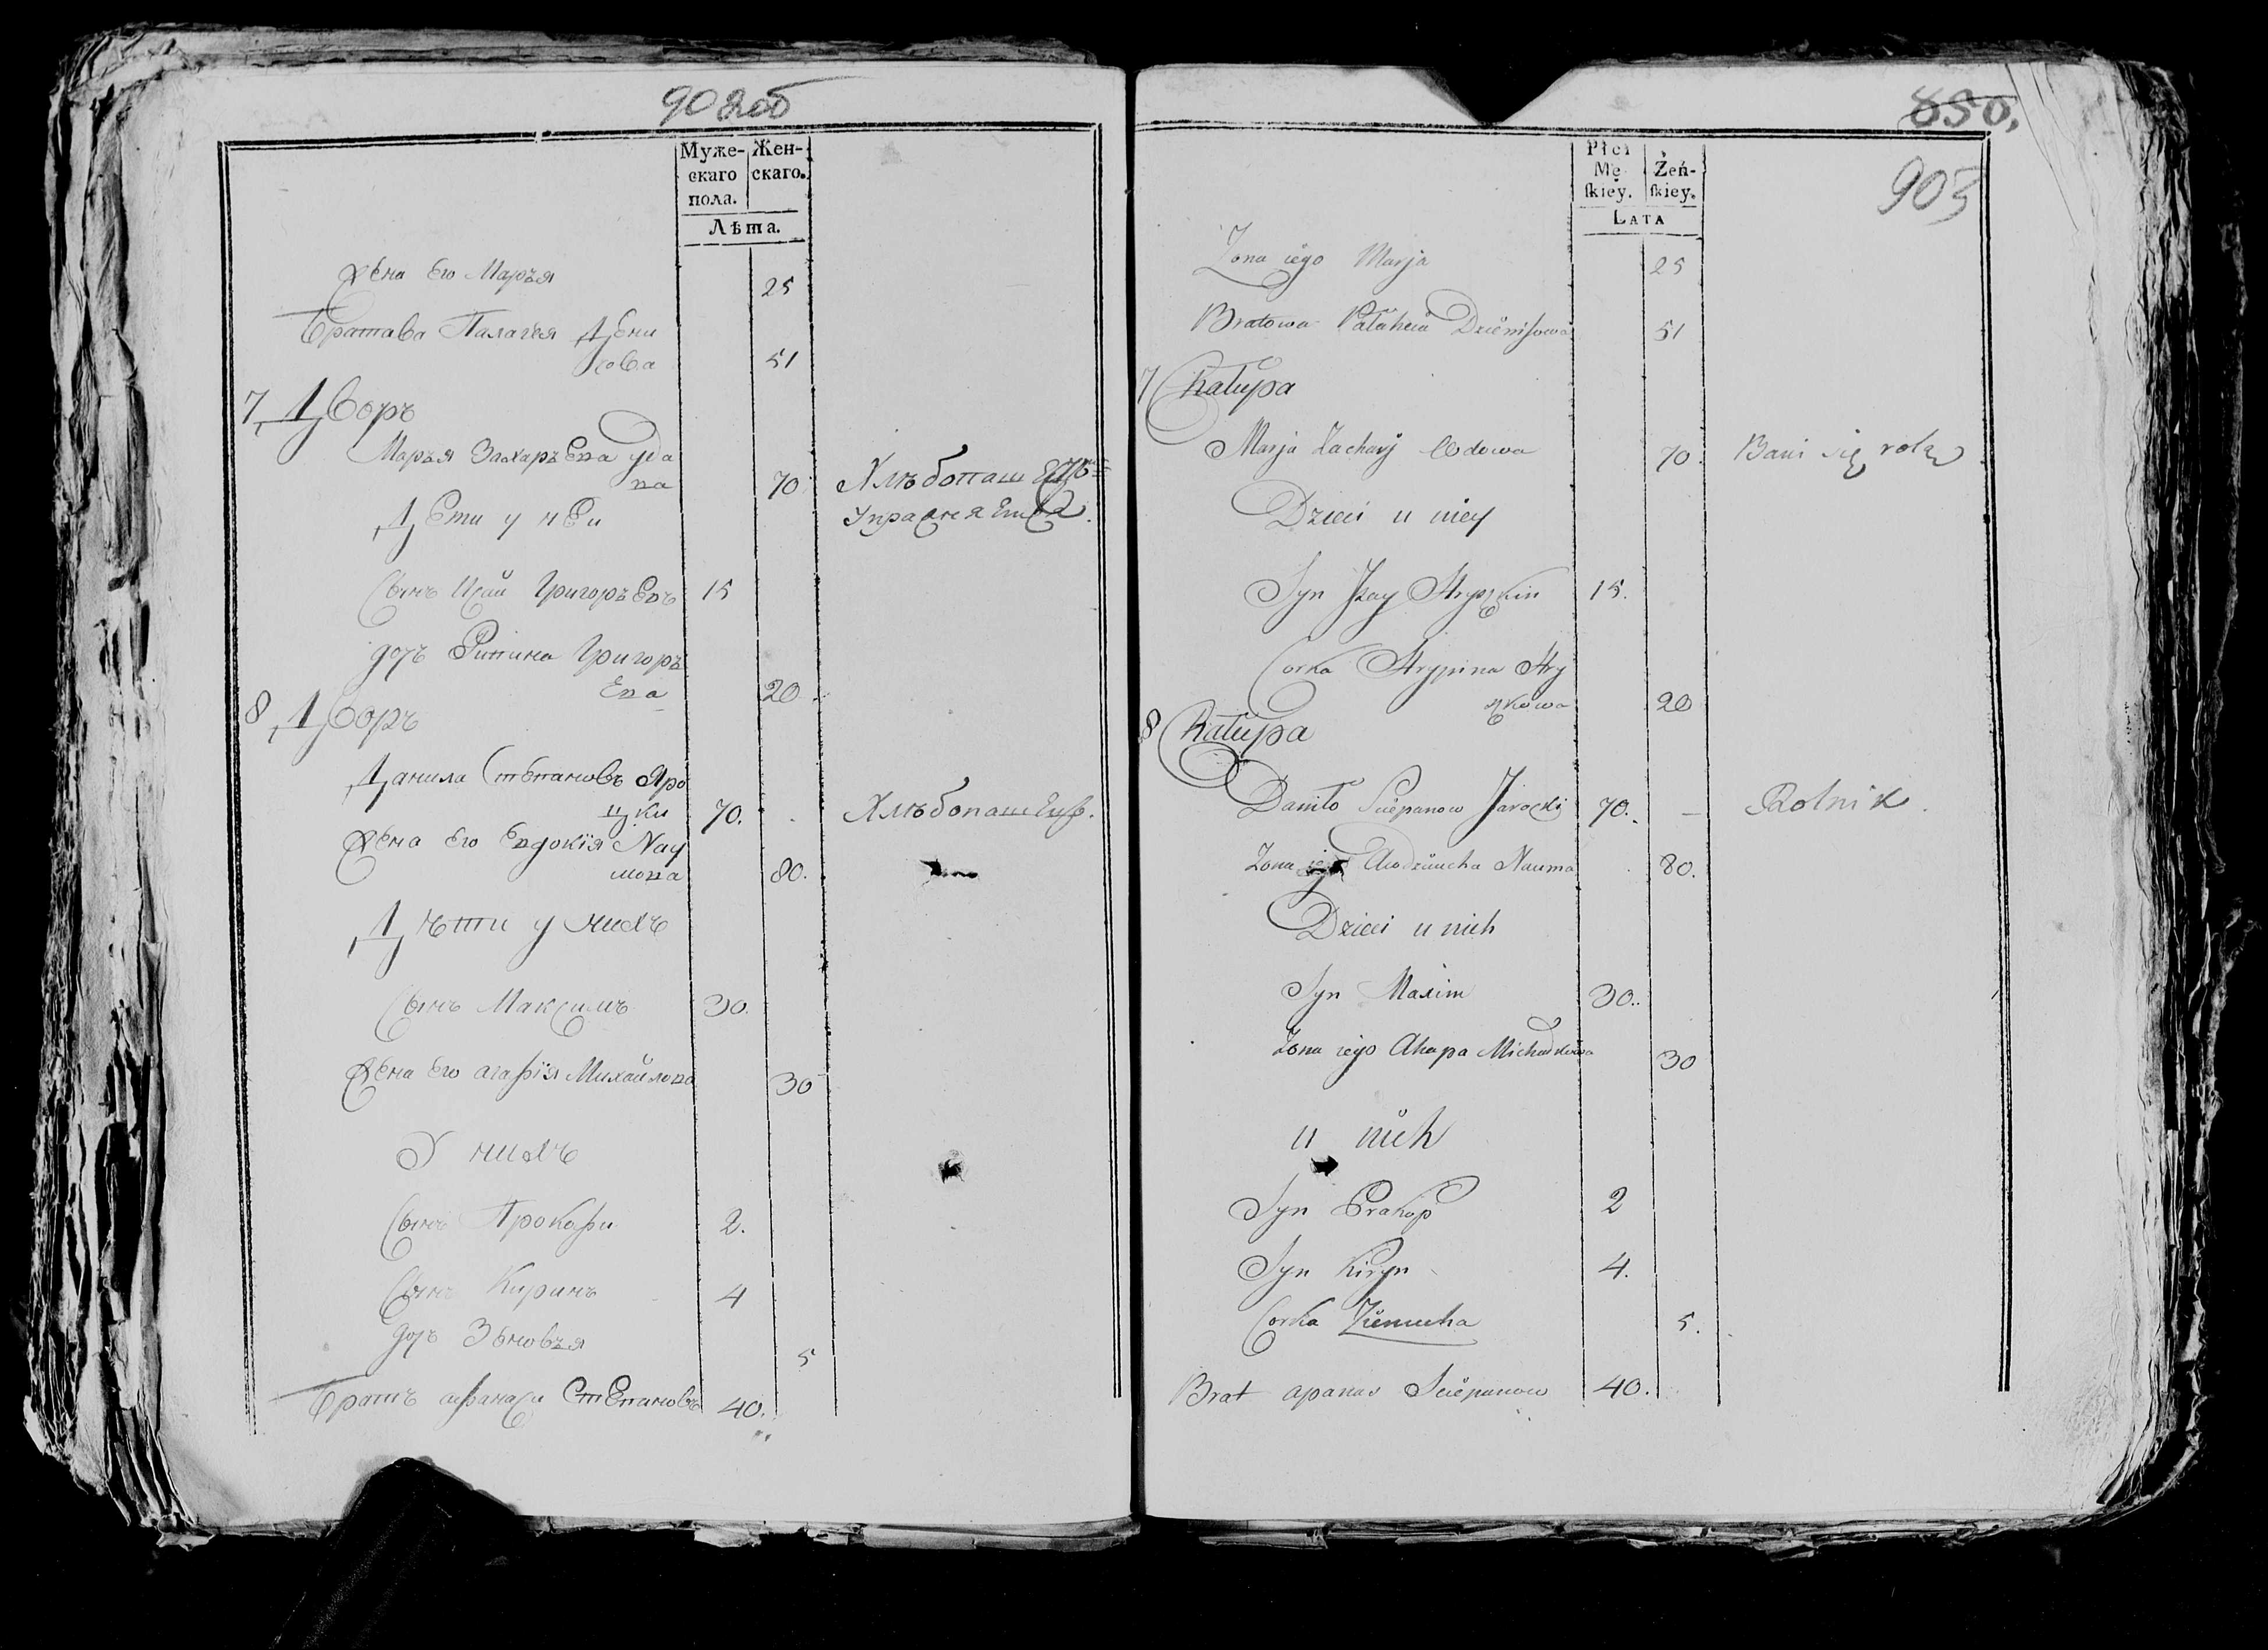 902об
Муже- Жен-
скаго скаго.
пола.
Лѣта.
Жена Его Маръя 25
Братава Палагея Дени
сова 51
7 Дворъ
Маръя ЗахаръЕва удо
ва 70 Хлѣбопаш
Дети у нЕи УпражняЕтся.
Сынъ Исай ГригоръЕвъ 15
дочъ Григоръ
Ева 20
8 Дворъ
Данила Степановъ Яро
цки 70. ХлѣбопашЕцъ.
Жена Его Евдокїя Нау
мова 80.
Дѣти у нихъ
Сынъ Максимъ 30.
Жена Его агафїя Михайлова 30
У нихъ
Сынъ Прокофи 2.
Сынъ Киринъ 4
дочъ Зѣновъя 5
Братъ афанаси СтЕпановъ 40.
850.
903
Płci
Mę Żeń-
skiey. skiey.
Lata
Żona iego Marja 25
Bratowa Pałaheia Dzienisowa 51
7 Chałupa
Marja Zachary Wdowa 70. Bawi się rolą
Dzieci u niey
Syn Jzay Hryszkin 15.
Corka Hrypina Hry
szkowa 20
8 Chałupa
Daniło Sciepanow Jarocki 70. – Rolnik.
Zona iego Nauma 80.
Dzieci u nich
Syn Maxim 30..
Żona iego Ahapa Michałkowa 30
u nich
Syn Prakop 2
Syn Kiryn 4.
Corka Zieniucha 5.
Brat apanas Sciepanow 40.